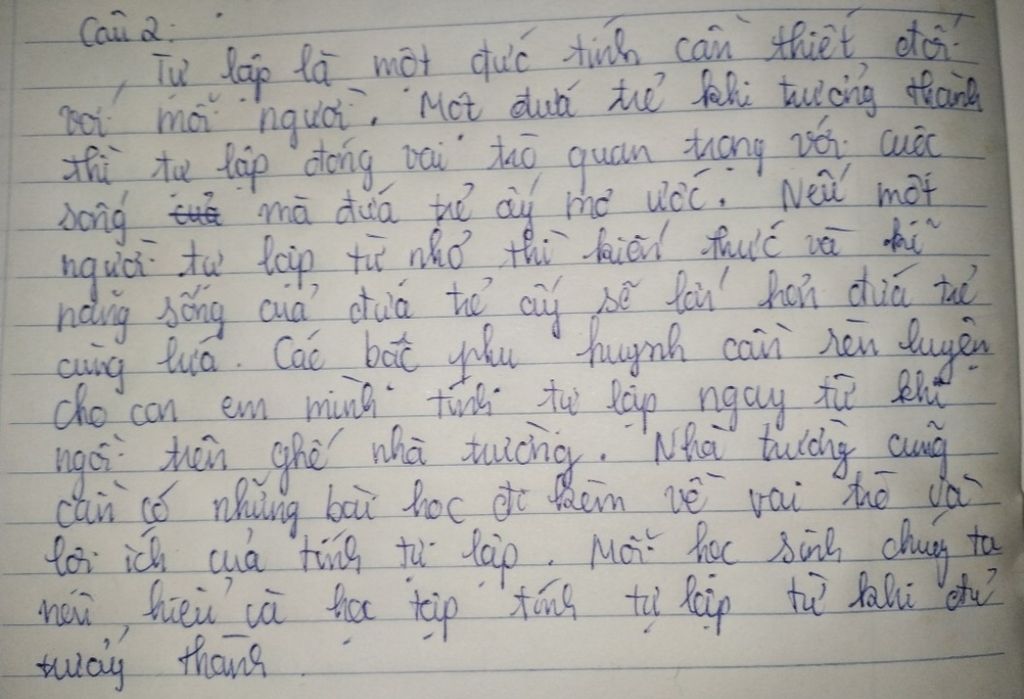 Câu 2:
Tự lập là một đức tính cần thiết đối
với mỗi người. Một đứa trẻ khi trưởng thành
thì tự lập đóng vai trò quan trọng với cuộc
sống của mà đứa trẻ ấy mơ ước. Nếu một
người tự lập từ nhỏ thì kiến thức và kĩ
năng sống của đứa trẻ ấy sẽ lớn hơn đứa trẻ
cùng lứa. Các bậc phụ huynh cần rèn luyện
cho con em mình tính tự lập ngay từ khi
ngồi trên ghế nhà trường. Nhà trường cũng
cần có những bài học đi kèm về vai trò và
lợi ích của tính tự lập. Mỗi học sinh chúng ta
nên hiểu và học tập tính tự lập từ khi
thành